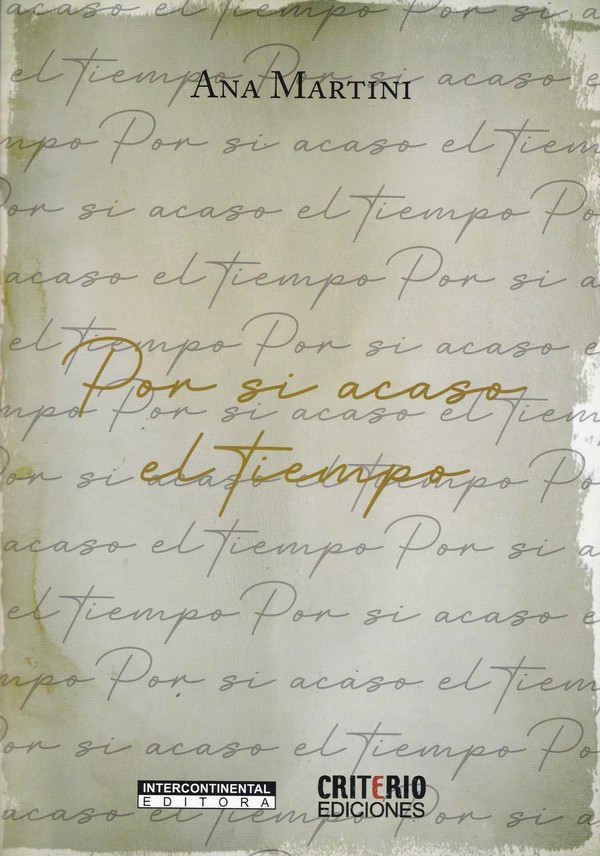 acaso el tiempo Por si a
el tiempo Por si acaso e
ANA MARTINI
mpo Por si acaso el tiem
or si acaso el tiempo Po
acaso el tiempo Por si a
el tiempo Por si acaso e
Por si acaso
mpo Por si acaso el tiem
el tiempo
or si acaso el tiempo Po
acaso el tiempo Por si a
el tiempo Por si acaso e
mpo Por si acaso el tiem
or si acaso el tiempo Po
INTERCONTINENTAL
EDITORA
CRITERIO
EDICIONES
acaso el tiempo Por si a